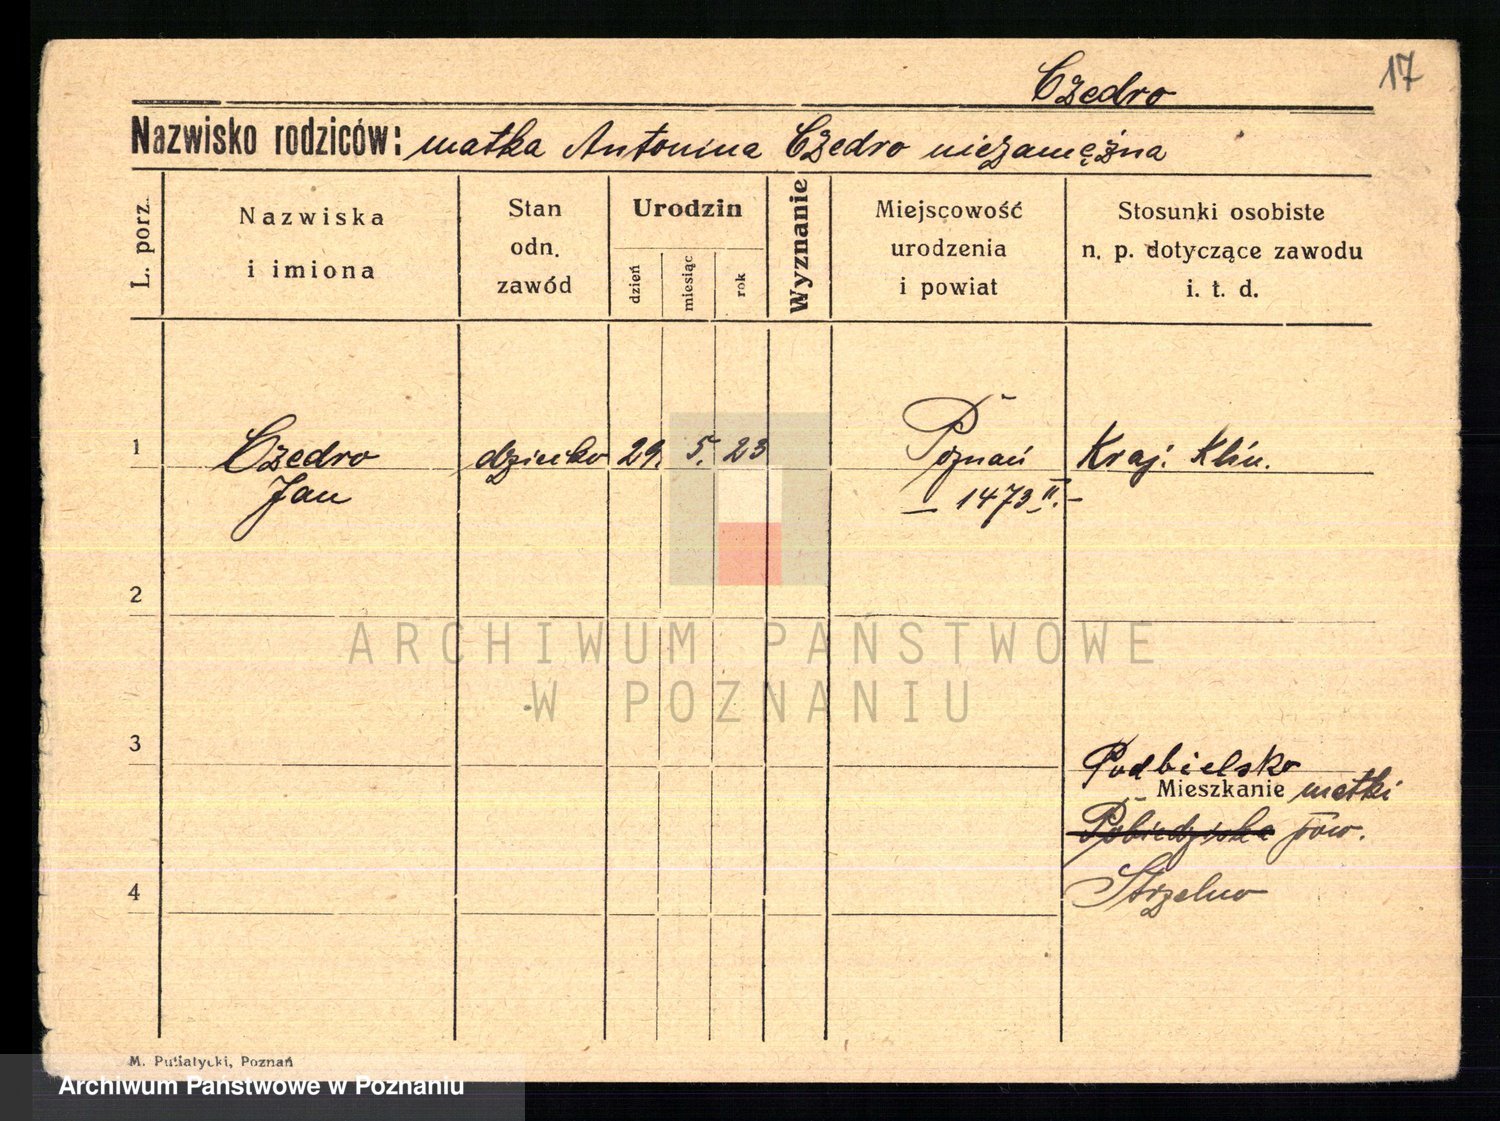 17
Czedro
Nazwisko rodziców: matka Antonina Czedro niezamężna
L. porz.
Nazwiska
i imiona
Stan
odn.
zawód
Urodzin
dzień
miesiąc
rok
Wyznanie
Miejscowość
urodzenia
i powiat
Stosunki osobiste
n. p. dotyczące zawodu
i. t. d.
1
Czedro
Jan
dziecko
29. 5. 23
Poznań
— 1473 II. —
Kraj. Klin.
2
ARCHIWUM PAŃSTWOWE
W POZNANIU
3
Podbielsko
Mieszkanie matki
Pobiedziska pow.
4
Strzelno
M. Putiatycki, Poznań
Archiwum Państwowe w Poznaniu